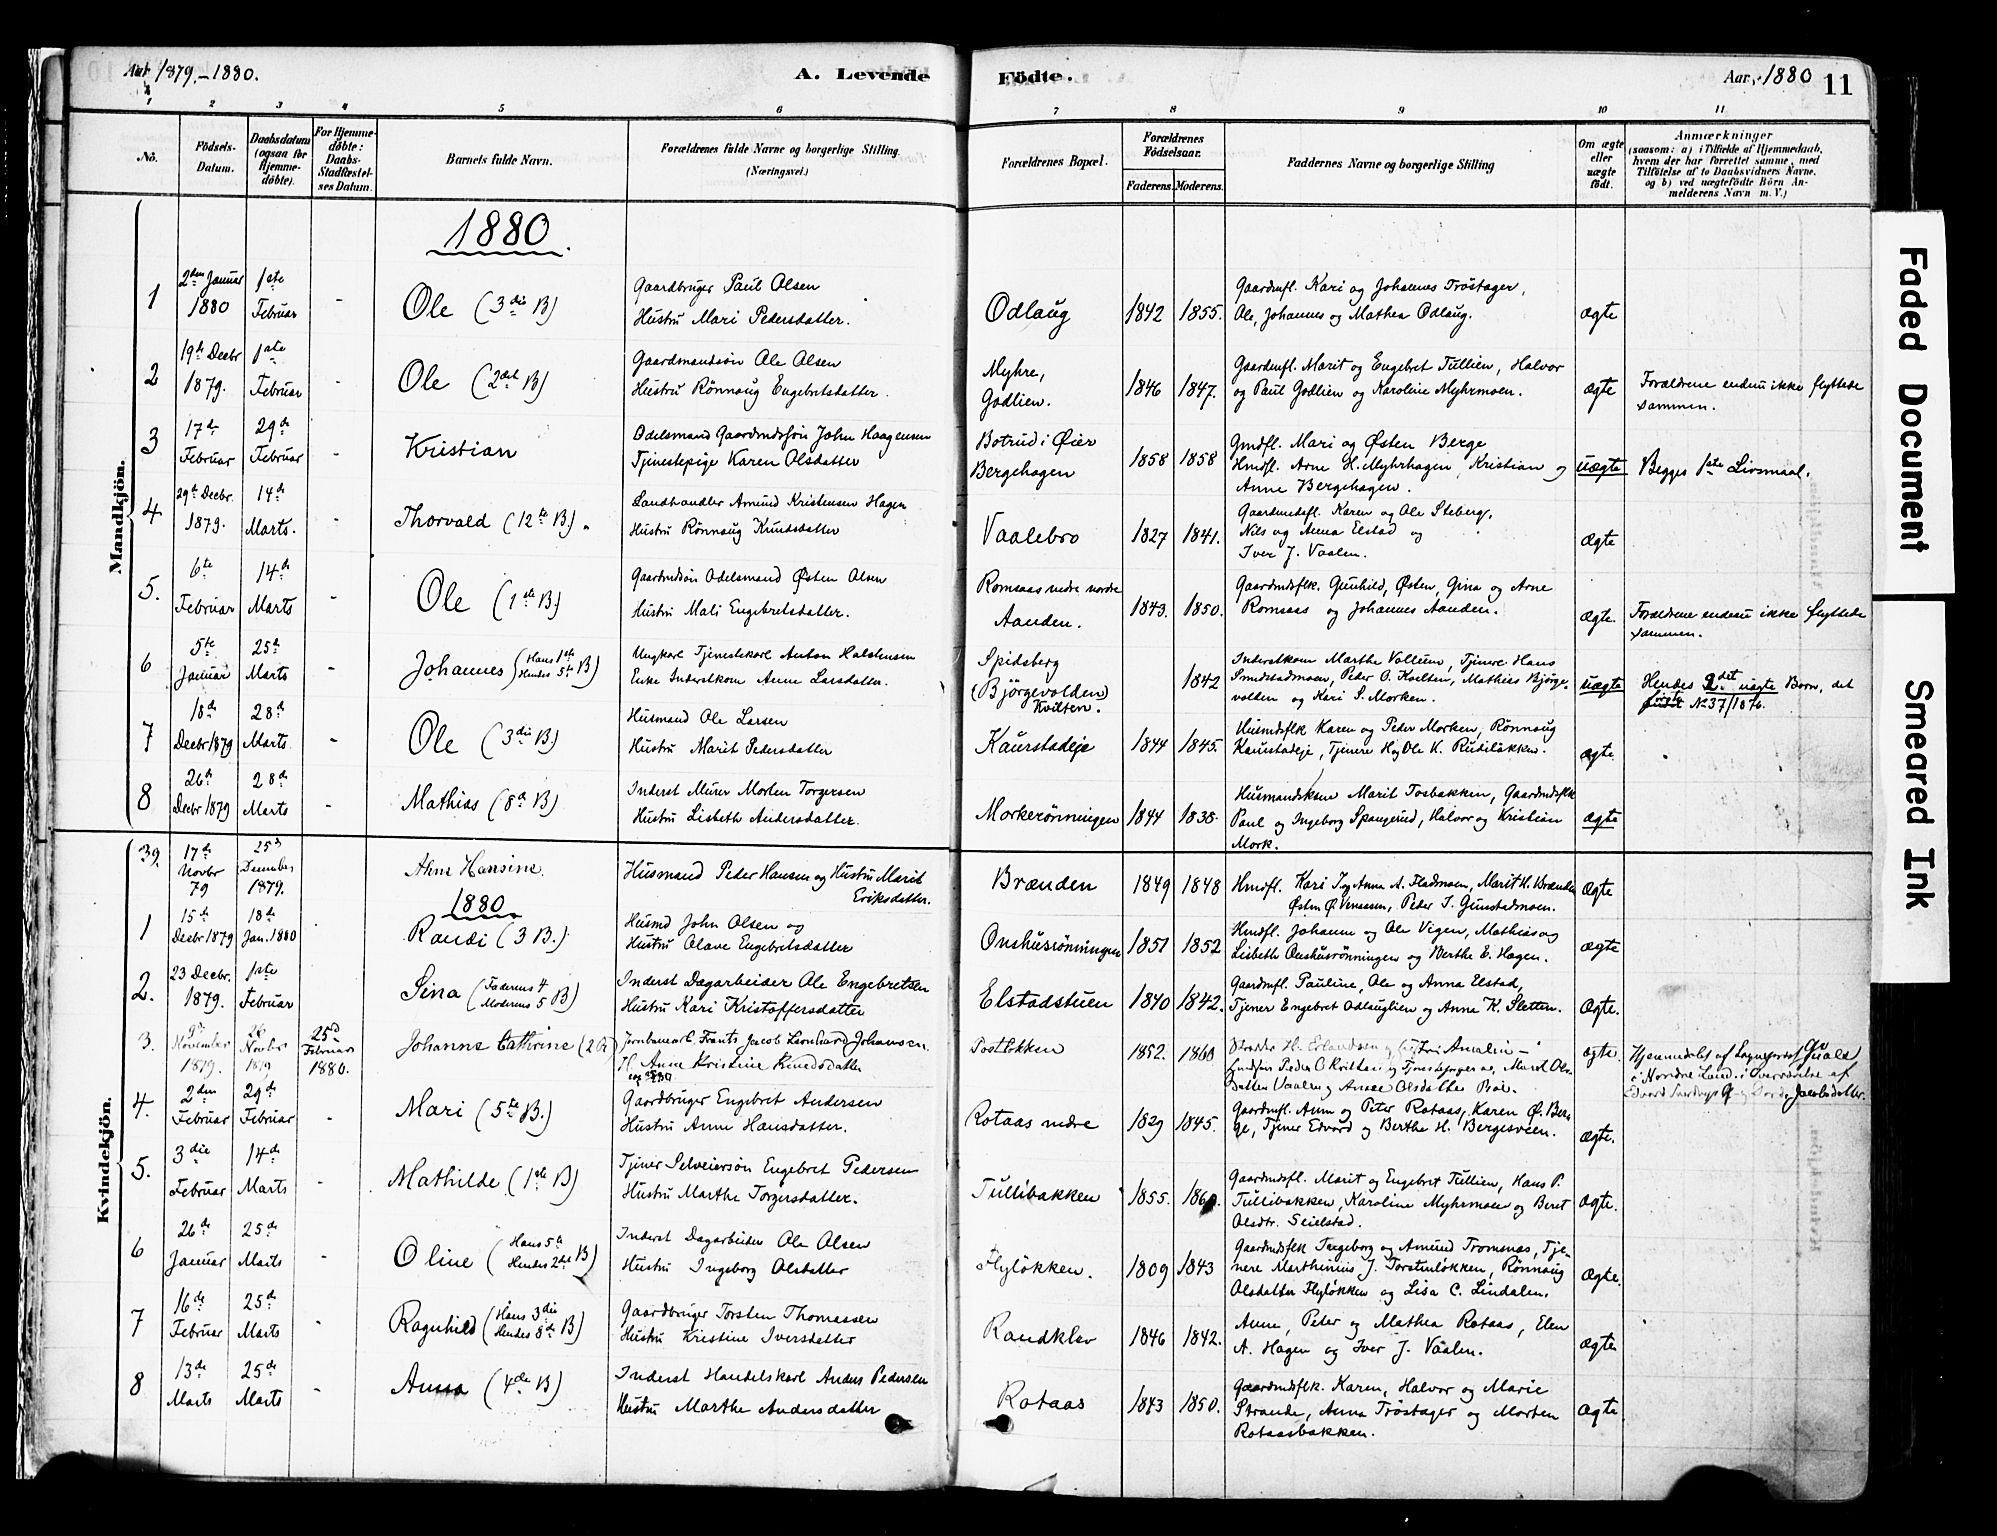 Aar 1879.-1880.
A. Levende
Födte.
Aar 1880
11
1 2 3 4 5 6 7 8 9 10 11
No.
Födsels-Datum.
Daabsdatum (ogsaa for Hjemmedöbte).
For Hjemmedöbte: Daabs-Stadfæstelses Datum.
Barnets fulde Navn.
Forældrenes fulde Navne og borgerlige Stilling
(Næringsvei.)
Forældrenes Bopæl.
Forældrenes Födselsaar.
Faderens. Moderens.
Faddernes Navne og borgerlige Stilling
Om ægte eller uægte födt.
Anmærkninger
(saasom: a) i Tilfælde af Hjemmedaab, hvem der har forrettet samme, med Tilföielse af to Daabsvidners Navne, og b) ved uægtefödte Börn Anmelderens Navn m. V.)
Mandkjön.
1880.
1
2den Januar 1880
1ste Februar
-
Ole (3die B)
Gaardbruger Paul Olsen
Hustru Mari Pedersdatter.
Odlaug
1842 1855.
Gaardmfl. Kari og Johannes Tröstager,
Ole, Johannes og Mathea Odlaug.
ægte
2
19de Decbr 1879.
1ste Februar
-
Ole (2det B)
Gaardmandsön Ole Olsen
Hustru Rönnaug Engebretsdatter.
Myhre,
Godlien.
1846 1847.
Gaardmfl. Marit og Engebret Tullien, Halvor
og Paul Godlien og Karoline Myhrmoen.
ægte
Forældrene endnu ikke flyttede
sammen.
3
17de Februar
29de Februar
-
Kristian
Odelsmand Gaardmdssön John Haagensen
Tjenestepige Karen Olsdatter
Botrud i Øier
Bergehagen
1858 1858
Gmdfl. Mari og Østen Berge
Hmdfl. Arne H. Myhrhagen, Kristian og
Anne Bergehagen.
uægte
Begges 1ste Leiermaal.
4
29de Decbr. 1879.
14de Marts.
-
Thorvald (12te B).
Landhandler Amund Kristensen Hagen
Hustru Rönnaug Knudsdatter
Vaalebro
1827 1841.
Gaardmdsfl. Karen og Ole Steberg,
Nils og Anna Elstad og
Iver J. Vaalen.
ægte
5.
6te Februar
14de Marts
-
Ole (1ste B.)
Gaardmdsön Odelsmand Østen Olsen
Hustru Mali Engebretsdatter.
Romsaas nedre nordre
Aanden.
1843. 1850.
Gaardmdsflk. Gunhild, Østen, Gina og Arne
Romsaas og Johannes Aanden.
ægte.
Forældrene endnu ikke flyttede
sammen.
6
5te Januar
25de Marts
-
Johannes (Hans 1ste Hendes 5te B)
Ungkarl Tjenestekarl Anton Halstensen
Enke Inderstkom Anne Larsdatter.
Spidsberg
(Björgevolden)
Kvilten.
1842
Inderstkom Marthe Vollum, Tjenere Hans
Smedstadmoen, Peder O. Kvilten, Mathias Björge-
volden og Kari S. Morken.
uægte
Hendes 2det uægte Barn, det
förste No 37/1876.
7
18de Decbr 1879
28de Marts.
-
Ole (3die B)
Husmand Ole Larsen
Hustru Marit Pedersdatter
Kaurstadeje
1844 1845.
Husmdsflk Karen og Peder Morken, Rönnaug
Kaurstadeje, Tjenere H og Ole K. Rudilökken.
ægte.
8
26de Decbr 1879
28de Marts
-
Mathias (8de B)
Inderst Murer Morten Torgersen
Hustru Lisbeth Andersdatter.
Morkerönningen
1844 1838.
Husmandskone Marit Tosbakken, Gaardmdsflk
Paul og Ingeborg Spangrud, Halvor og Kristian
Mork.
ægte
Kvindekjön.
39.
17de Novbr 79
25de December 1879.
Hansine.
Husmand Peder Hansen og Hustru Marit
Eriksdatter.
Brænden
1849 1848
Hmdfl. Kari og Anne A. Fladmoen, Marit H. Brænden
Peder J. Gunstadmoen.
Ægte
1880
1
15de Decbr 1879
18de Jan. 1880
Randi (3 B.)
Husmd John Olsen og
Hustru Olave Engebretsdatter
Onshusrönningen
1851 1852
Hmdfl. Johanne og Ole Vigen, Mathias og
Lisbeth Onshusrönningen og Berthe E. Hagen.
ægte
2.
23 Decbr. 1879.
1ste Februar
Sina (Faderens 4 Moderens 5 B)
Inderst Dagarbeider Ole Engebretsen
Hustru Kari Kristoffersdatter
Elstadstuen
1840 1842.
Gaardmfl. Pauline, Ole og Anna Elstad,
Tjener Engebret Odlauglien og Anna K. Sletten.
Ægte.
3.
9de November 1879.
26 Novbr 1879
25de Februar 1880.
Johanne Cathrine (2 B)
Frants Jacob Leonhard Johansen
H. Anne Kristine Knudsdatter
Tostlökken
1852. 1860
ægte.
Hjemmedöbt af Sogneprest
i Nordre Land
4.
2den Februar
29de Februar
-
Mari (5te B.)
Gaardbruger Engebret Andersen
Hustru Anne Hansdatter.
Rotaas nedre
1829 1845.
Gaardmfl. Anne og Peter Rotaas, Karen Ø. Ber-
ge, Tjener Edvard og Berthe H. Bergesveen.
Ægte.
5.
3die Februar
14de Marts
-
Mathilde (1ste B)
Tjener Selveiersön Engebret Pedersen
Hustru Marthe Torgersdatter.
Tullibakken
1855. 1860.
Gaardmdsfl. Marit og Engebret Tullien, Hans P.
Tullibakken, Karoline Myhrmoen og Beret
Olsdtr. Seielstad.
Ægte.
6
26de Januar
25de Marts
-
Oline (Hans 5te Hendes 2det B)
Inderst Dagarbeider Ole Olsen
Hustru Ingeborg Olsdatter
Flylökken.
1809 1843
Gaardmdsflk Ingeborg og Amund Tromsnæs, Tje-
nere Marthinus J. Torstenlökken, Rönnaug
Olsdatter Flylökken og Lisa C. Lindalen.
Ægte.
7
16de Februar
25de Marts
-
Ragnhild (Hans 3die Hendes 8de B)
Gaardbruger Torsten Thomassen
Hustru Kristine Iversdatter
Randklev
1846 1842.
Anne, Peter og Mathea Rotaas, Elen
A. Hagen og Iver J. Vaalen.
Ægte
8
13de Marts
25de Marts
-
Anna (4de B)
Inderst Handelskarl Anders Pedersen
Hustru Marthe Andersdatter
Rotaas
1843 1850.
Gaardmdsflk. Karen, Halvor og Marie
Strande, Anna Tröstager og Morten
Rotaasbakken.
Ægte
Faded Document
Smeared Ink